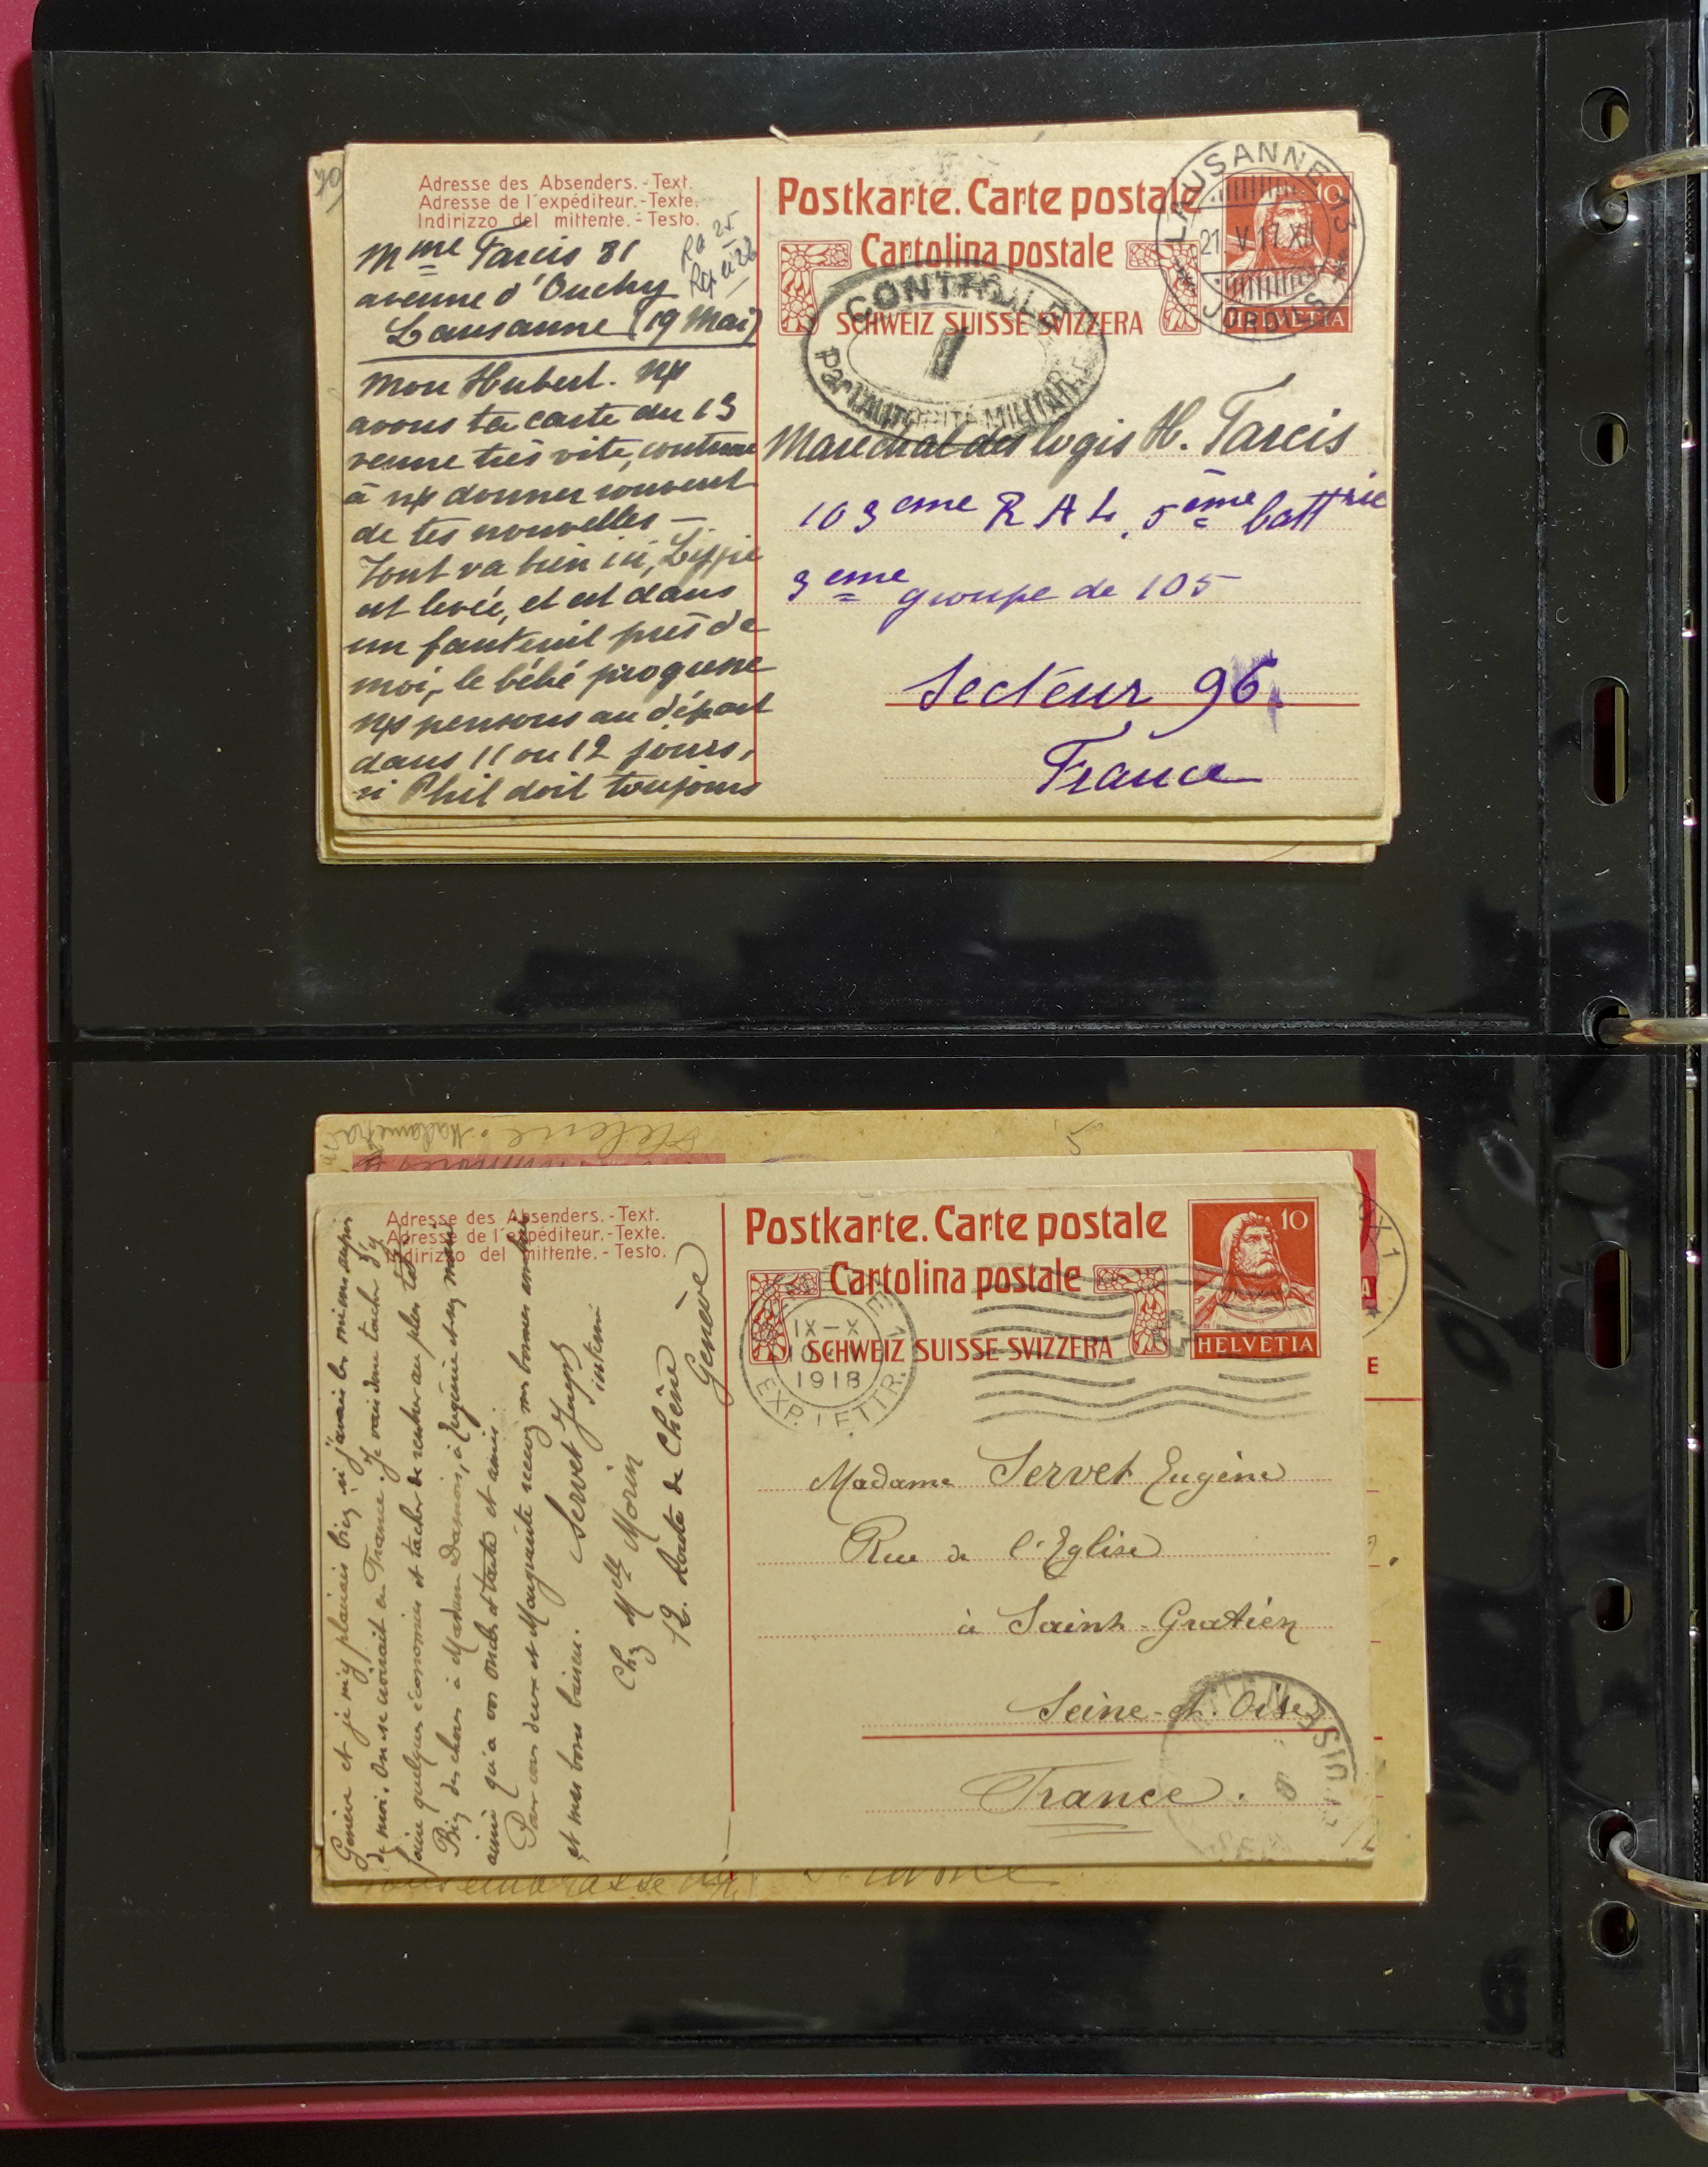 Adresse des Absenders. - Text.
Adresse de l'expéditeur. - Texte.
Indirizzo del mittente. - Testo.
Mme Tarcis 81
avenue d'Ouchy
Lausanne (19 Mai)
Mon Hubert. np
avons ta carte du 13
venue très vite, continue
à np donner souvent
de tes nouvelles —.
Tout va bien ici,
est levée, et est dans
un fauteuil près de
moi, le bébé progresse
np pensons au départ
dans 11 ou 12 jours,
si Phil doit toujours
Postkarte. Carte postale
Cartolina postale
SCHWEIZ SUISSE SVIZZERA
10
HELVETIA
LAUSANNE 13
21 V 17 XII
JORDILS
CONTROLE
1
Par l'AUTORITÉ MILITAIRE
Maréchal des logis H. Tarcis
103eme R A L, 5ème battrie
3eme groupe de 105
Secteur 96.
France
Adresse des Absenders. - Text.
Adresse de l'expéditeur. - Texte.
Indirizzo del mittente. - Testo.
Genève et je m'y plairais bien si j'avais les miens auprès
de moi. On se croirait en France. Je vais donc tacher d'y
faire quelques économies et tacher de rentrer au plus tôt.
Bien des choses à Madame Damoin, à Eugénie et ses
ainsi qu'a vos oncles et tante et amis.
Pour vous deux et Marguerite recevez mes bonnes amitiés
et mes bons baisers.
Servet Joseph
interné
Chz Melle Morin
12. Route de Chêne
Genève
Postkarte. Carte postale
Cartolina postale
SCHWEIZ SUISSE SVIZZERA
10
HELVETIA
IX-X
10
1918
EXP. LETTR.
Madame Servet Eugène
Rue de l'Eglise
à Saint-Gratien
Seine-et-Oise
France.